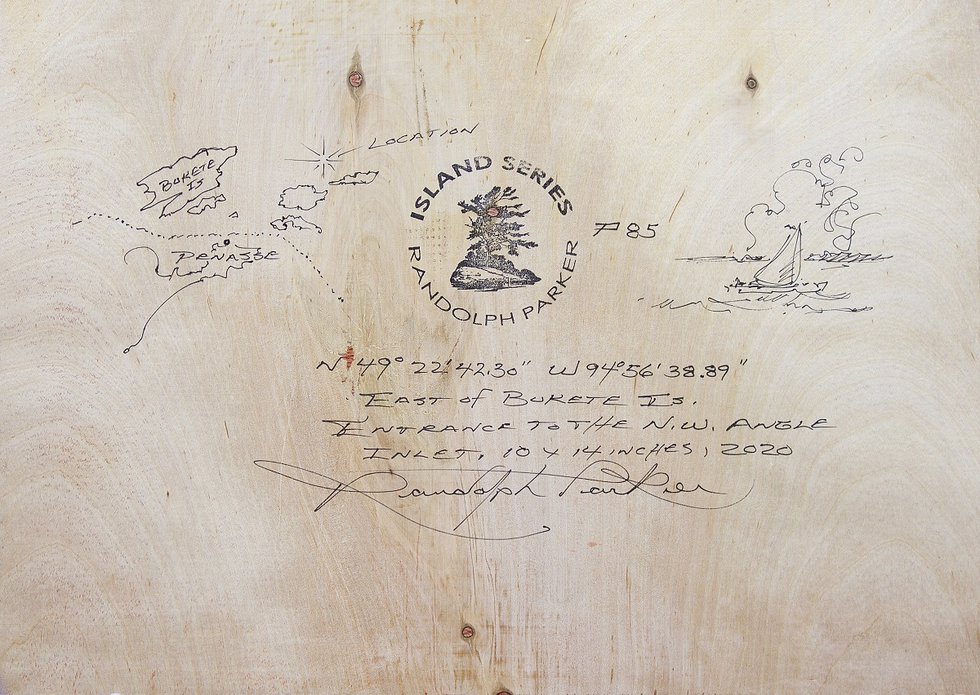 LOCATION
BUKETE
IS
PENASSE
ISLAND SERIES
RANDOLPH PARKER
P85
N 49° 22' 42.30" W 94° 56' 38.89"
EAST OF BUKETE IS.
ENTRANCE TO THE N.W. ANGLE
INLET, 10 X 14 INCHES, 2020
Randolph Parker